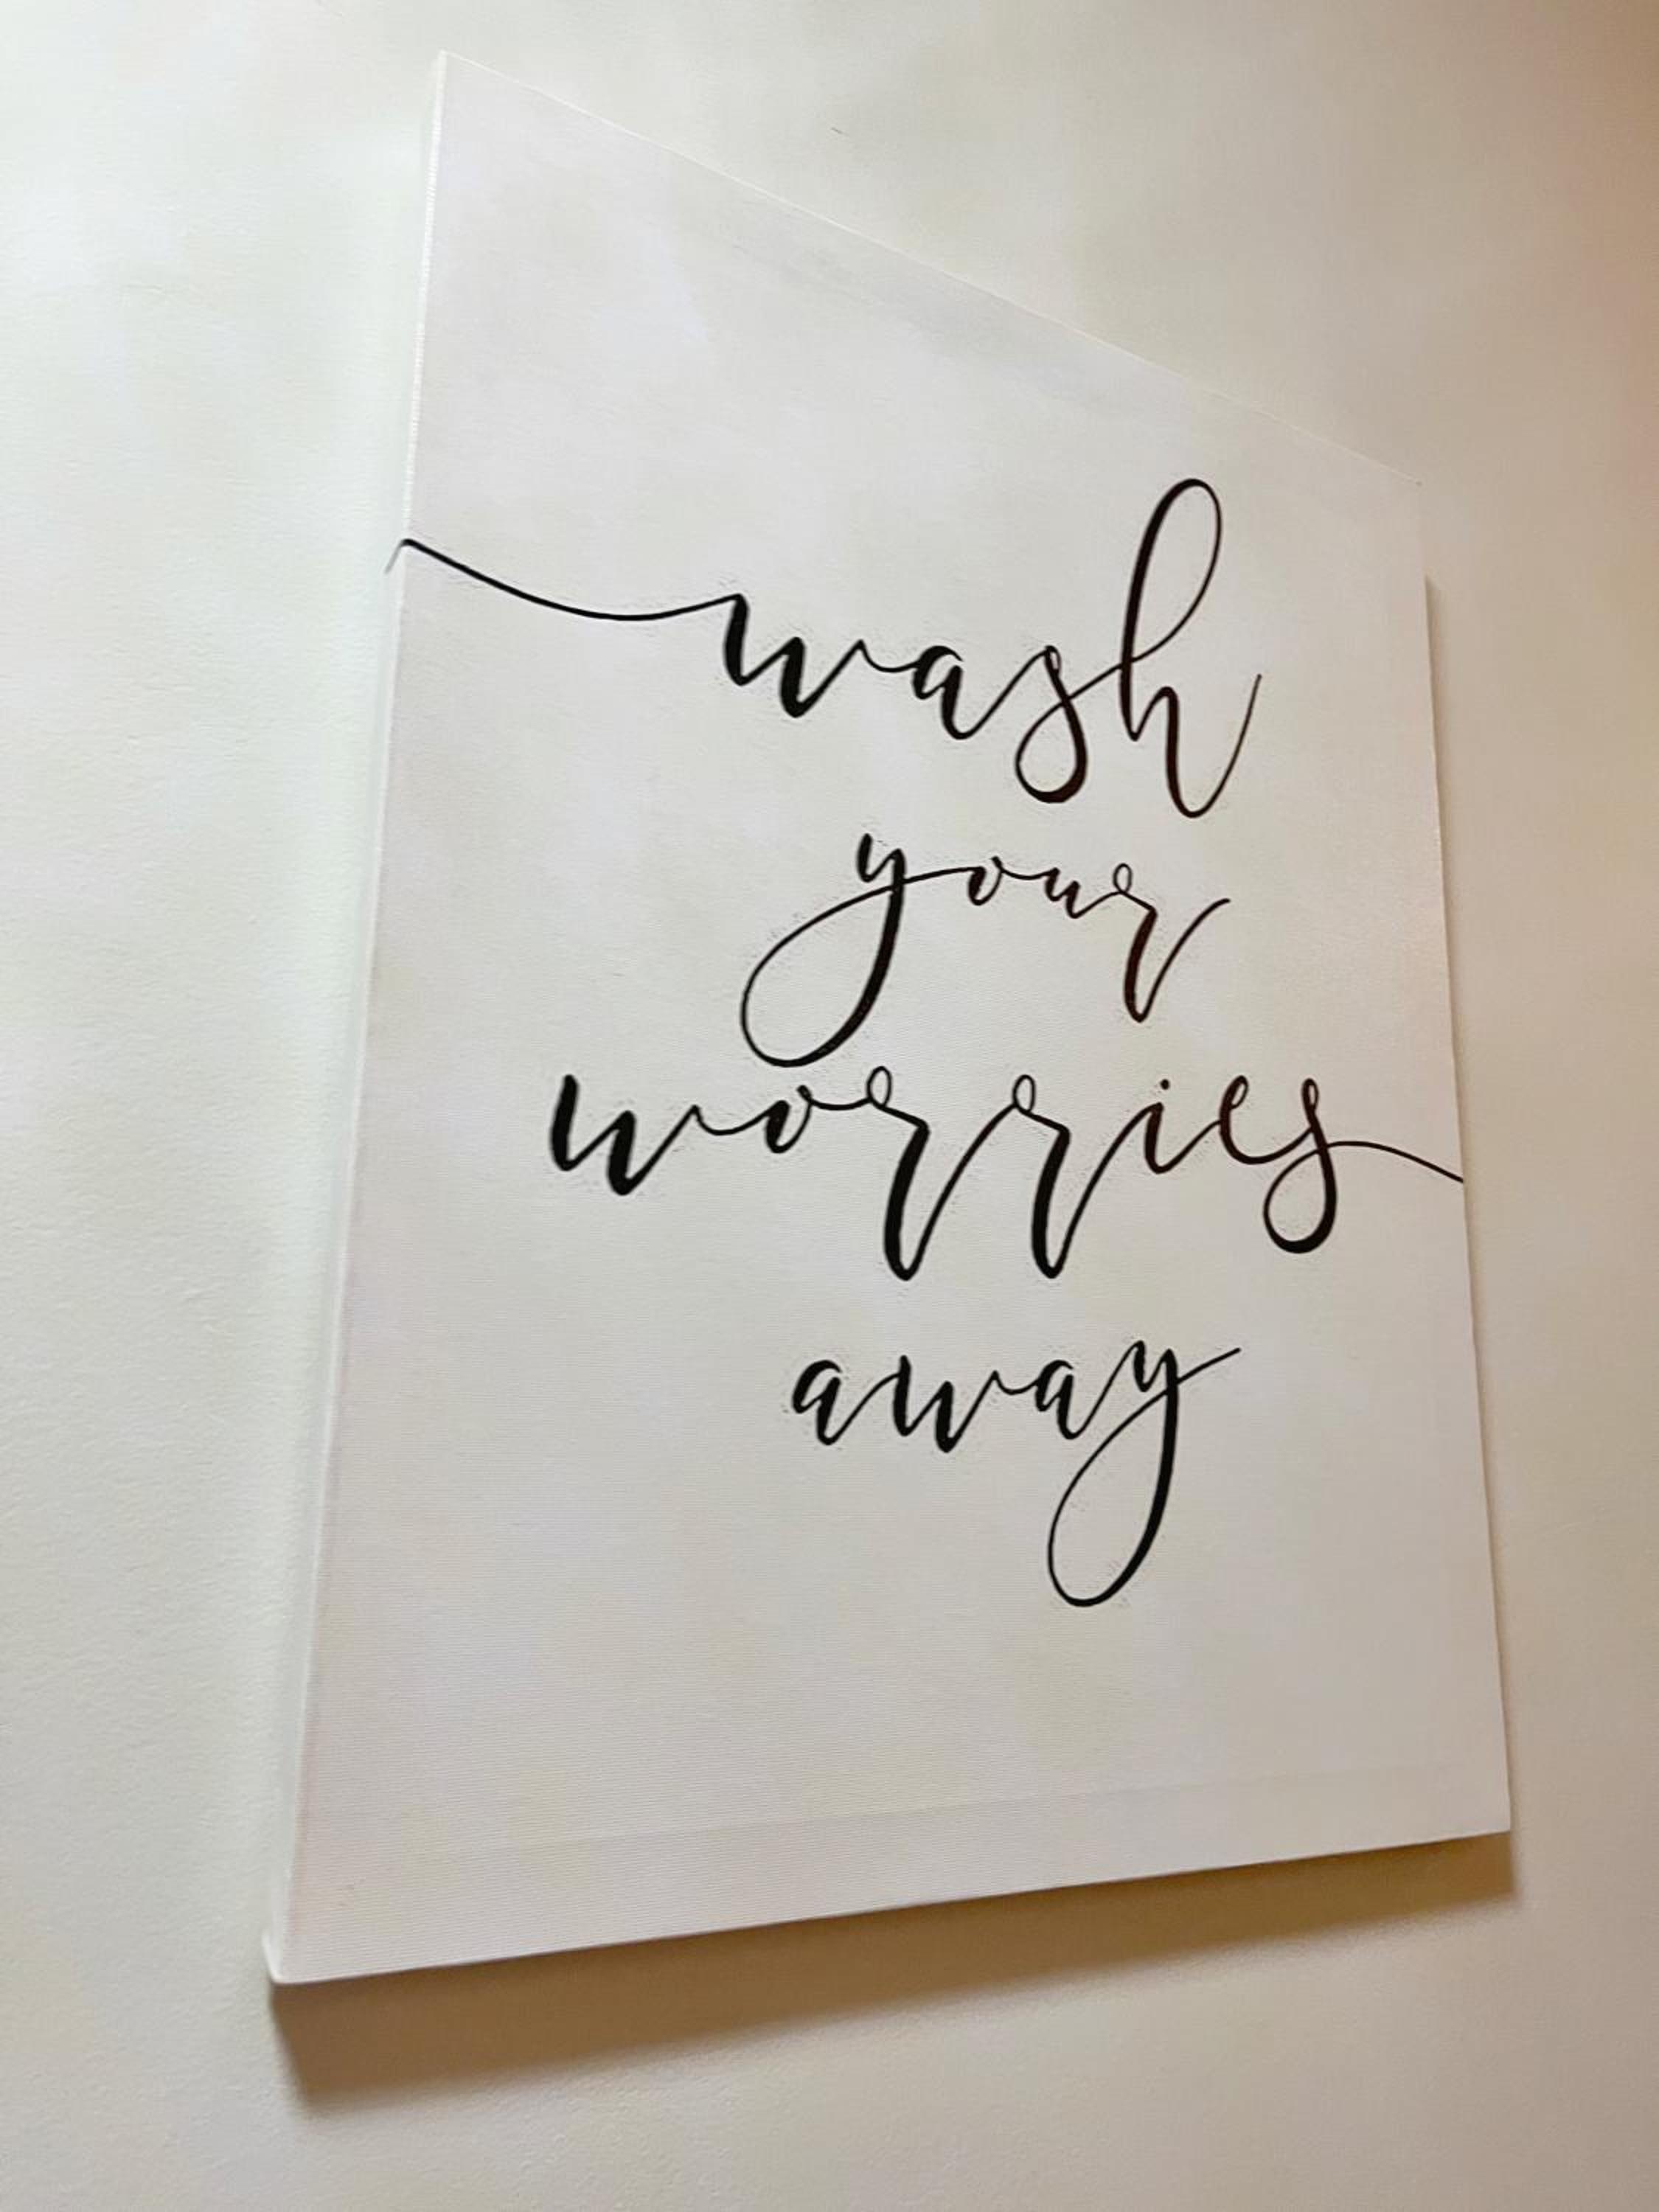 wash
your
worries
away